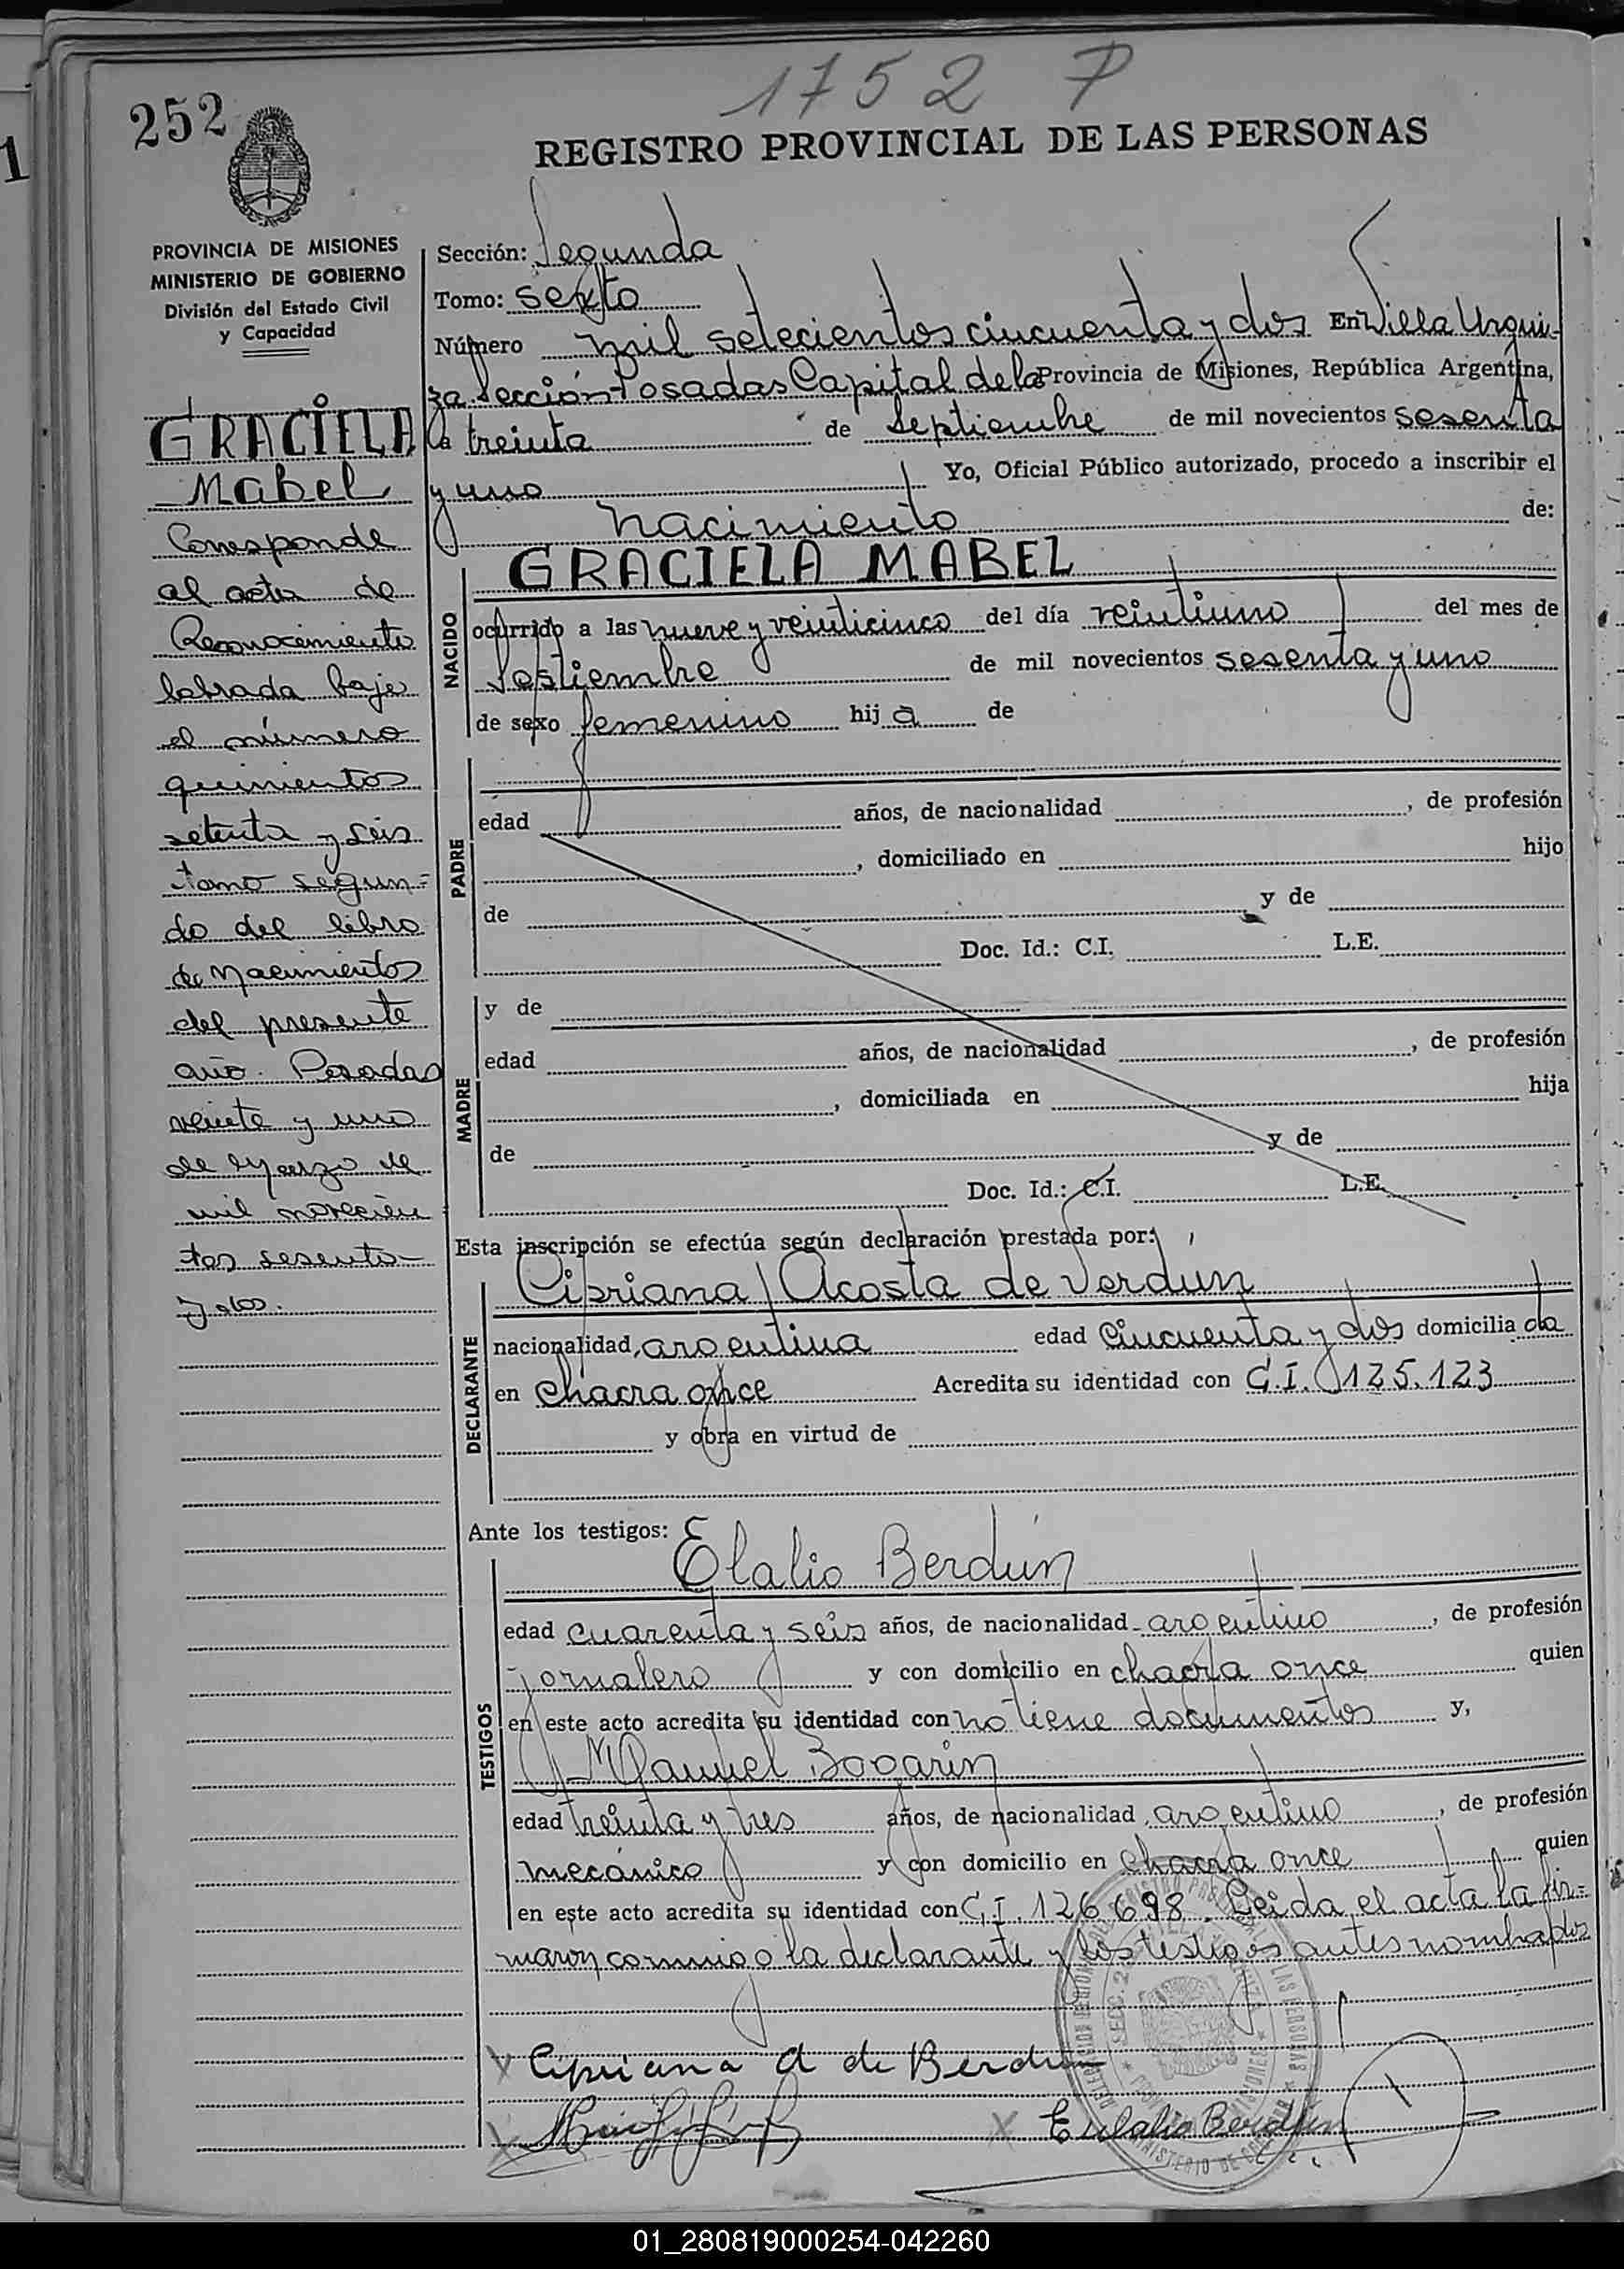 1752 P
252
1
REGISTRO PROVINCIAL DE LAS PERSONAS
PROVINCIA DE MISIONES
MINISTERIO DE GOBIERNO
División del Estado Civil
y Capacidad
GRACIELA
Mabel
Corresponde
al acta de
Reconocimiento
labrada bajo
el número
quinientos
setenta y seis
tomo segun=
do del libro
de Nacimientos
del presente
año. Posadas
veinte y uno
de Marzo de
mil novecien
tos sesenta
y dos.
Sección: Segunda
Tomo: sexto
Número mil setecientos cincuenta y dos En Villa Urqui-
za Sección Posadas Capital de la Provincia de Misiones, República Argentina,
a treinta de Septiembre de mil novecientos sesenta
y uno Yo, Oficial Público autorizado, procedo a inscribir el
nacimiento de:
NACIDO
GRACIELA MABEL
ocurrido a las nueve y veinticinco del día veintiuno del mes de
Septiembre de mil novecientos sesenta y uno
de sexo femenino hija de
PADRE
edad años, de nacionalidad , de profesión
, domiciliado en hijo
de y de
Doc. Id.: C.I. L.E.
MADRE
y de
edad años, de nacionalidad , de profesión
, domiciliada en hija
de y de
Doc. Id.: C.I. L.E.
Esta inscripción se efectúa según declaración prestada por:
DECLARANTE
Cipriana Acosta de Verdun
nacionalidad argentina edad cincuenta y dos domiciliada
en chacra once Acredita su identidad con C.I. 125.123
y obra en virtud de
Ante los testigos:
TESTIGOS
Elalio Berdún
edad cuarenta y seis años, de nacionalidad argentino , de profesión
jornalero y con domicilio en chacra once quien
en este acto acredita su identidad con no tiene documentos y,
Manuel Bogarin
edad treinta y tres años, de nacionalidad argentino , de profesión
mecánico y con domicilio en chacra once quien
en este acto acredita su identidad con C.I. 126.698. Leida el acta la fir=
maron conmigo la declarante y los testigos antes nombrados
Cipriana A de Berdun
Eulalio Berdún
01_280819000254-042260